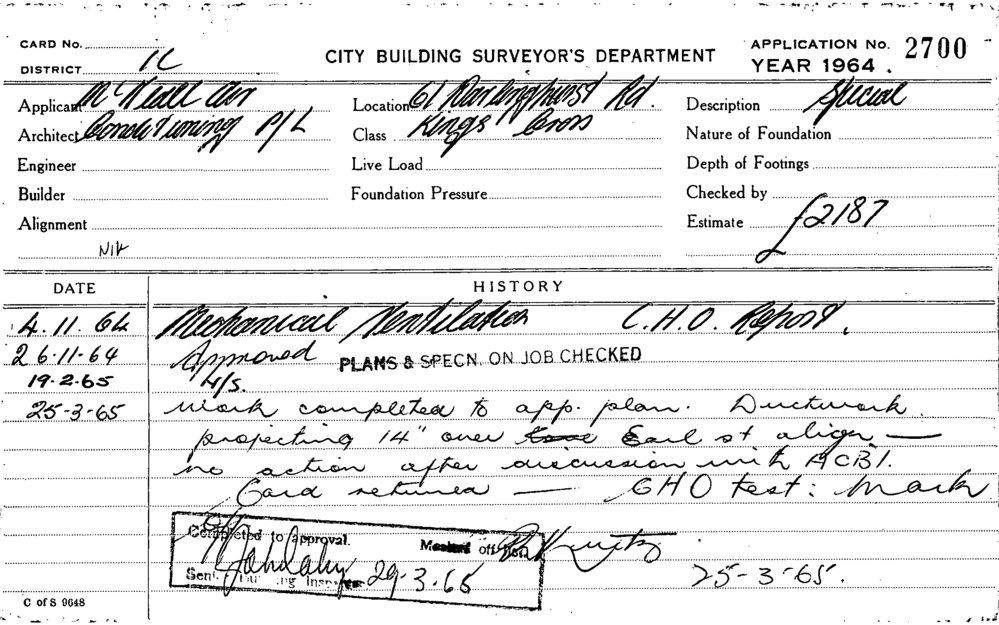 CARD No.
DISTRICT 1C
CITY BUILDING SURVEYOR'S DEPARTMENT
APPLICATION No. 2700
YEAR 1964.
Applicant McNeall Air
Location 61 Darlinghurst Rd.
Description Special
Architect P/L
Class Kings Cross
Nature of Foundation
Engineer
Live Load
Depth of Footings
Builder
Foundation Pressure
Checked by
Alignment
Estimate £2187
DATE
HISTORY
4.11.64 Mechanical Ventilation C.H.O. Report.
26.11.64 Approved PLANS & SPECN. ON JOB CHECKED
19.2.65 W/S.
25-3-65 Work completed to app. plan. Ductwork
projecting 14" over Earl st align —
no action after discussion with ACBI.
Card returned — CHO test: Mark
Completed to approval.
off
Building Inspector 29.3.65
25-3-65.
C of S 9648